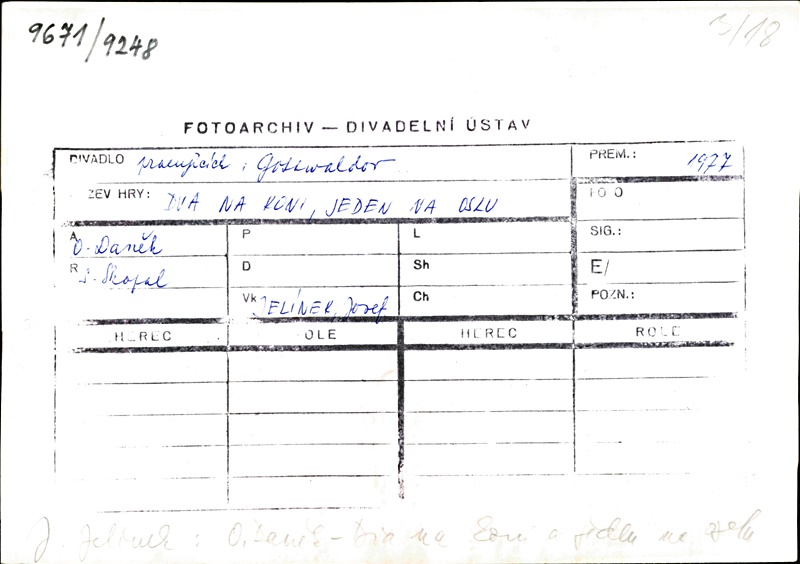 9671/9248
3/18
FOTOARCHIV — DIVADELNÍ ÚSTAV
DIVADLO pracujících : Gottwaldov
PREM.: 1977
ZEV HRY: DVA NA KONI, JEDEN NA OSLU
FO O
A O. Daněk
P
L
SIG.:
R S. Skopal
D
Sh
E/
Vk JELÍNEK, Josef
Ch
POZN.:
HEREC
OLE
HEREC
ROLE
J. Jelínek : O. Daněk - Dva na koni a jeden na